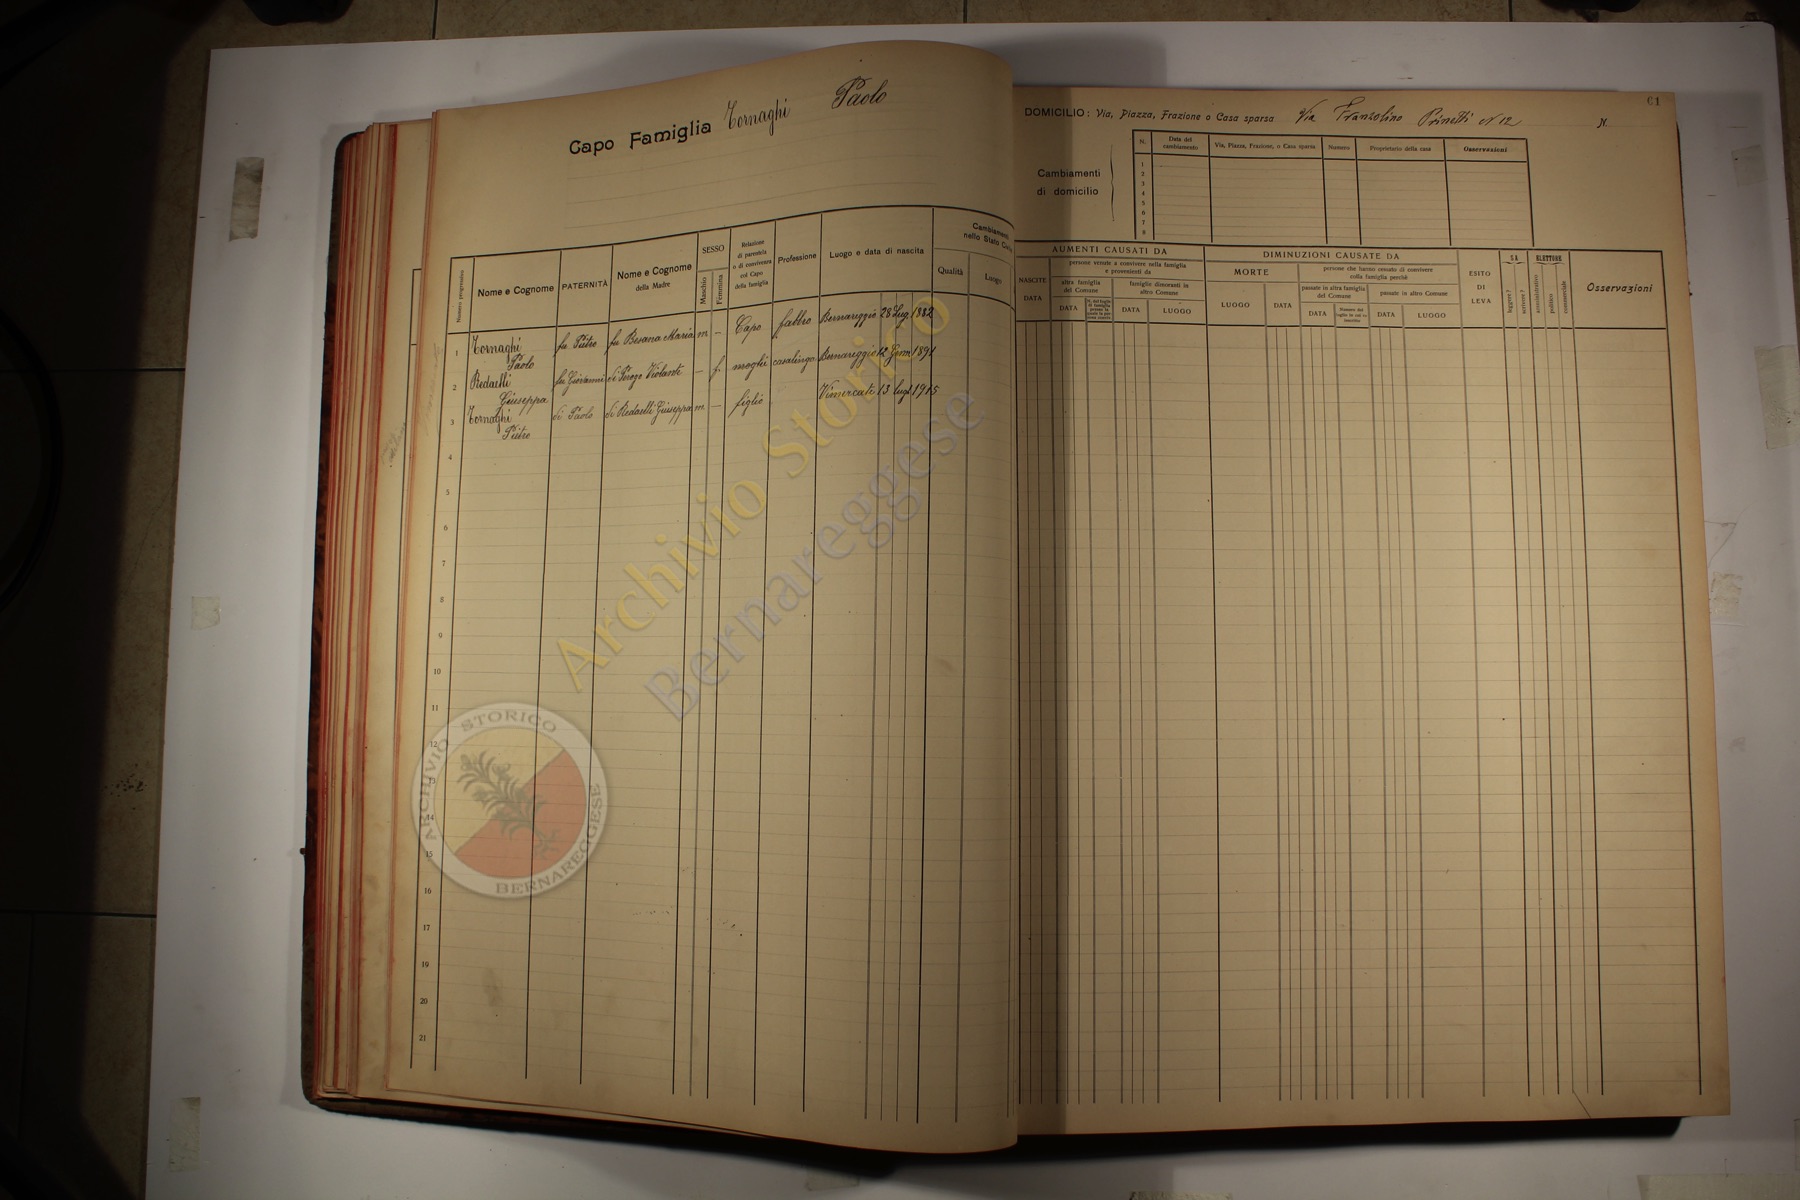 Capo Famiglia Tornaghi Paolo
Numero progressivo
Nome e Cognome
PATERNITÀ
Nome e Cognome
della Madre
SESSO
Maschio
Femmina
Relazione
di parentela
o di convivenza
col Capo
della famiglia
Professione
Luogo e data di nascita
Cambiamenti
nello Stato Civile
Qualità
Luogo
1 Tornaghi Paolo fu Pietro fu Besana Maria m. – Capo fabbro Bernareggio 28 Lug. 1882
2 Redaelli Giuseppa fu Giovanni di Perego Violante – f. moglie casalinga Bernareggio 12 Genn 1891
3 Tornaghi Pietro di Paolo di Redaelli Giuseppa m. – figlio Vimercate 13 Lugl 1915
4
5
6
7
8
9
10
11
12
13
14
15
16
17
18
19
20
21
C1
DOMICILIO: Via, Piazza, Frazione o Casa sparsa Via Franzolino Prinetti N 12 N.
Cambiamenti
di domicilio
N.
Data del
cambiamento
Via, Piazza, Frazione, o Casa sparsa
Numero
Proprietario della casa
Osservazioni
1
2
3
4
5
6
7
8
AUMENTI CAUSATI DA
NASCITE
DATA
persone venute a convivere nella famiglia
e provenienti da
altra famiglia
del Comune
DATA
famiglie dimoranti in
altro Comune
DATA
LUOGO
DIMINUZIONI CAUSATE DA
MORTE
LUOGO
DATA
persone che hanno cessato di convivere
colla famiglia perchè
passate in altra famiglia
del Comune
DATA
passate in altro Comune
DATA
LUOGO
ESITO
DI
LEVA
SA
leggere?
scrivere?
ELETTORE
amministrativo
politico
commerciale
Osservazioni
Archivio Storico
Bernareggese
ARCHIVIO STORICO
BERNAREGGESE